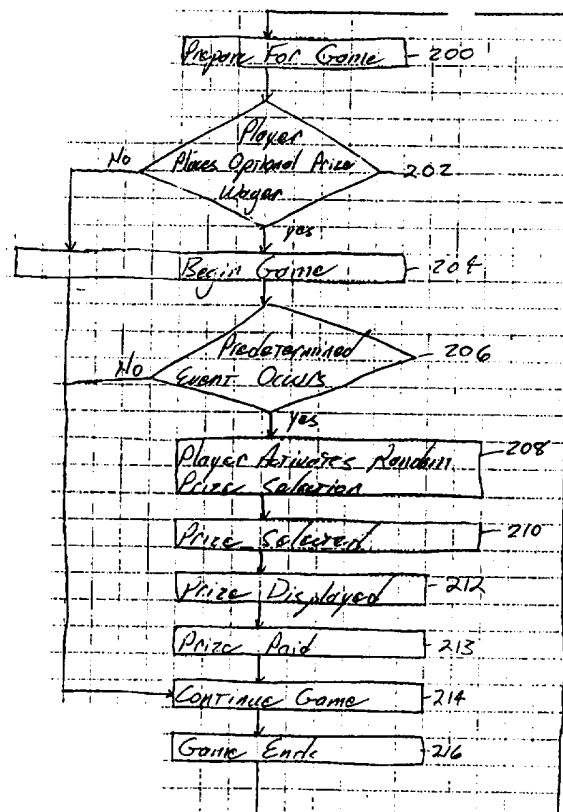 Prepare For Game 200
Player
No Places Optional Prize 202
Wager
yes
Begin Game 204
Predetermined 206
No Event Occurs
yes
Player Activates Random 208
Prize Selection
Prize Selected 210
Prize Displayed 212
Prize Paid 213
Continue Game 214
Game Ends 216